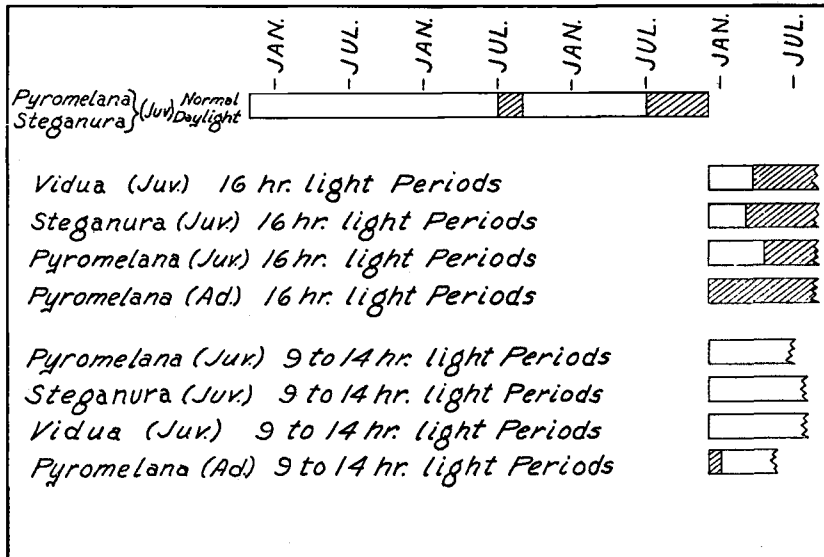 JAN. JUL. JAN. JUL. JAN. JUL. JAN. JUL.
Pyromelana
Steganura
} (Juv.) Normal
Daylight
Vidua (Juv.) 16 hr. light Periods
Steganura (Juv.) 16 hr. light Periods
Pyromelana (Juv.) 16 hr. light Periods
Pyromelana (Ad.) 16 hr. light Periods
Pyromelana (Juv.) 9 to 14 hr. light Periods
Steganura (Juv.) 9 to 14 hr. light Periods
Vidua (Juv.) 9 to 14 hr. light Periods
Pyromelana (Ad.) 9 to 14 hr. light Periods